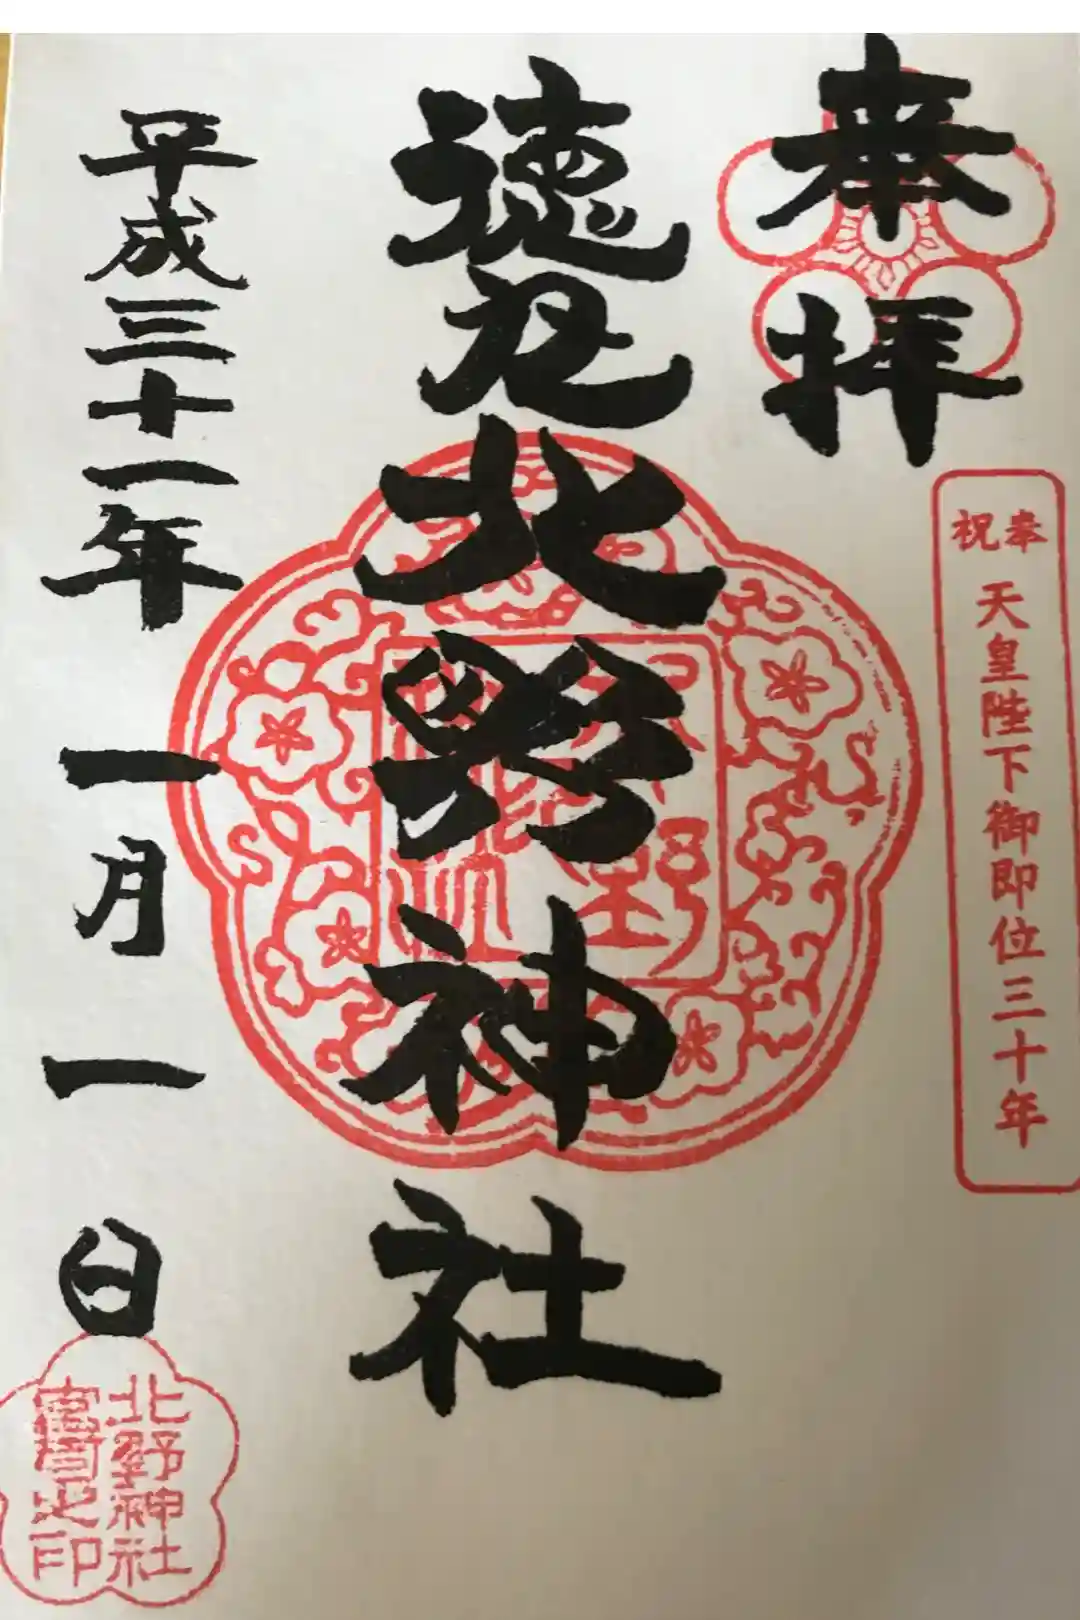 奉拝
奉祝 天皇陛下御即位三十年
徳丸北野神社
平成三十一年 一月一日
北野神社
之印